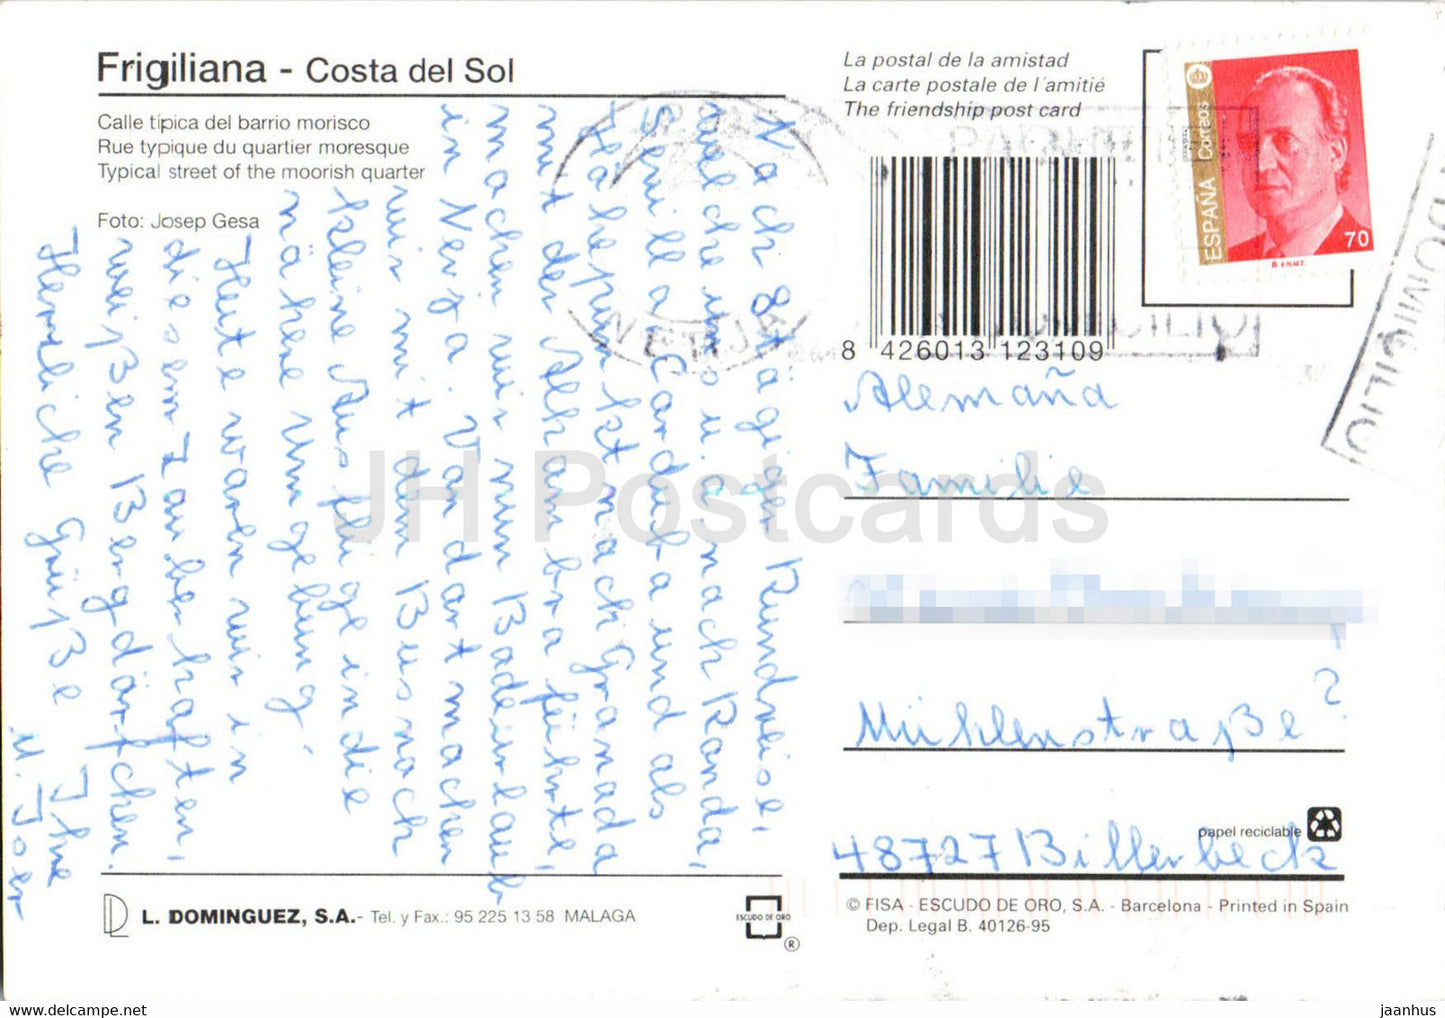 Frigiliana - Costa del Sol
Calle típica del barrio morisco
Rue typique du quartier moresque
Typical street of the moorish quarter
Foto: Josep Gesa
Nach 8tägiger Rundreise,
welche uns u. a. nach Ronda,
Sevilla, Cordoba und als
Höhepunkt nach Granada
mit der Alhambra führte,
machen wir nun Badeurlaub
in Nerja. Von dort machen
wir mit dem Bus nach
kleine Ausflüge in die
nähere Umgebung.
Heute waren wir in
diesem zauberhaften,
weißen Bergdörfchen.
Herzliche Grüße Ihre
La postal de la amistad
La carte postale de l'amitié
The friendship post card
ESPAÑA Correos
70
F.N.M.T.
NERJA
DOMICILIO
8 426013 123109
Alemaña
Familie
Mühlenstraße ?
48727 Billerbeck
papel reciclable
L. DOMINGUEZ, S.A.- Tel. y Fax.: 95 225 13 58 MALAGA
ESCUDO DE ORO
®
© FISA - ESCUDO DE ORO, S.A. - Barcelona - Printed in Spain
Dep. Legal B. 40126-95
JH Postcards
HipPostcard.com
jaanhus